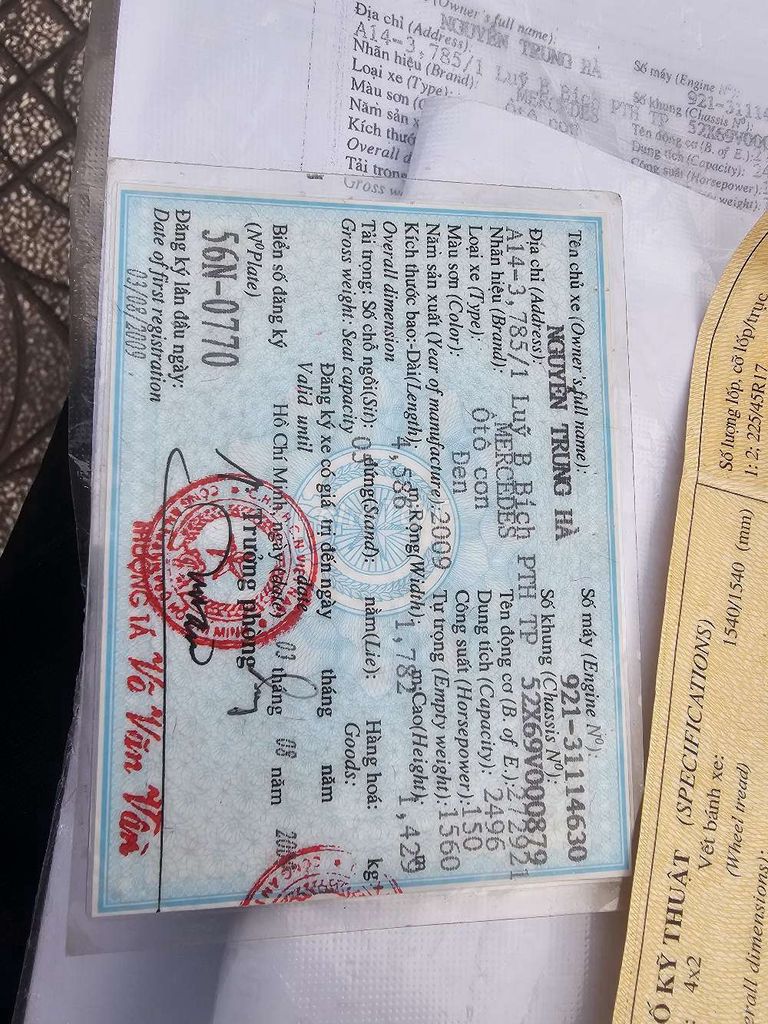 (Owner's full name):
NGUYỄN TRUNG HÀ
Địa chỉ (Address):
A14-3, 785/1 Luỹ B Bích PTH TP
Nhãn hiệu (Brand):
MERCEDES
Loại xe (Type):
Ôtô con
Màu sơn
Năm sản
Kích thước
Overall
Tải trọng
Gross
Số máy (Engine Nº):
921-3111
Số khung (Chassis Nº)
52X69V000
Tên động cơ (B. of E.):
Dung tích (Capacity):
Công suất (Horsepower):
weight):
Tên chủ xe (Owner's full name):
NGUYỄN TRUNG HÀ
Địa chỉ (Address):
A14-3, 785/1 Luỹ B Bích PTH TP
Nhãn hiệu (Brand): MERCEDES
Loại xe (Type): Ôtô con
Màu sơn (Color): Đen
Năm sản xuất (Year of manufacture): 2009
Kích thước bao:-Dài(Length): 4,586 m Rộng(Width) 1,782 m Cao(Height) 1,429 m
Overall dimension
Tải trọng: Số chỗ ngồi(Sit): 05 đứng(Stand): nằm(Lie): Hàng hoá: kg
Gross weight: Seat capacity Goods:
Số máy (Engine Nº):
921-31114630
Số khung (Chassis Nº):
52X69V000879
Tên động cơ (B. of E.): 272921
Dung tích (Capacity): 2496
Công suất (Horsepower): 150
Tự trọng (Empty weight): 1560
Đăng ký xe có giá trị đến ngày tháng năm
Valid until date
Biển số đăng ký
(NºPlate)
56N-0770
Hồ Chí Minh, ngày (date) 03 tháng 08 năm
Trưởng phòng
Đăng ký lần đầu ngày:
Date of first registration
03/08/2009
THƯỢNG TÁ Võ Văn Vân
Số lượng lốp, cỡ lốp/trục
1: 2; 225/45R17
1540/1540 (mm)
KỸ THUẬT (SPECIFICATIONS)
Vết bánh xe:
4x2
(Wheel tread)
dimensions):